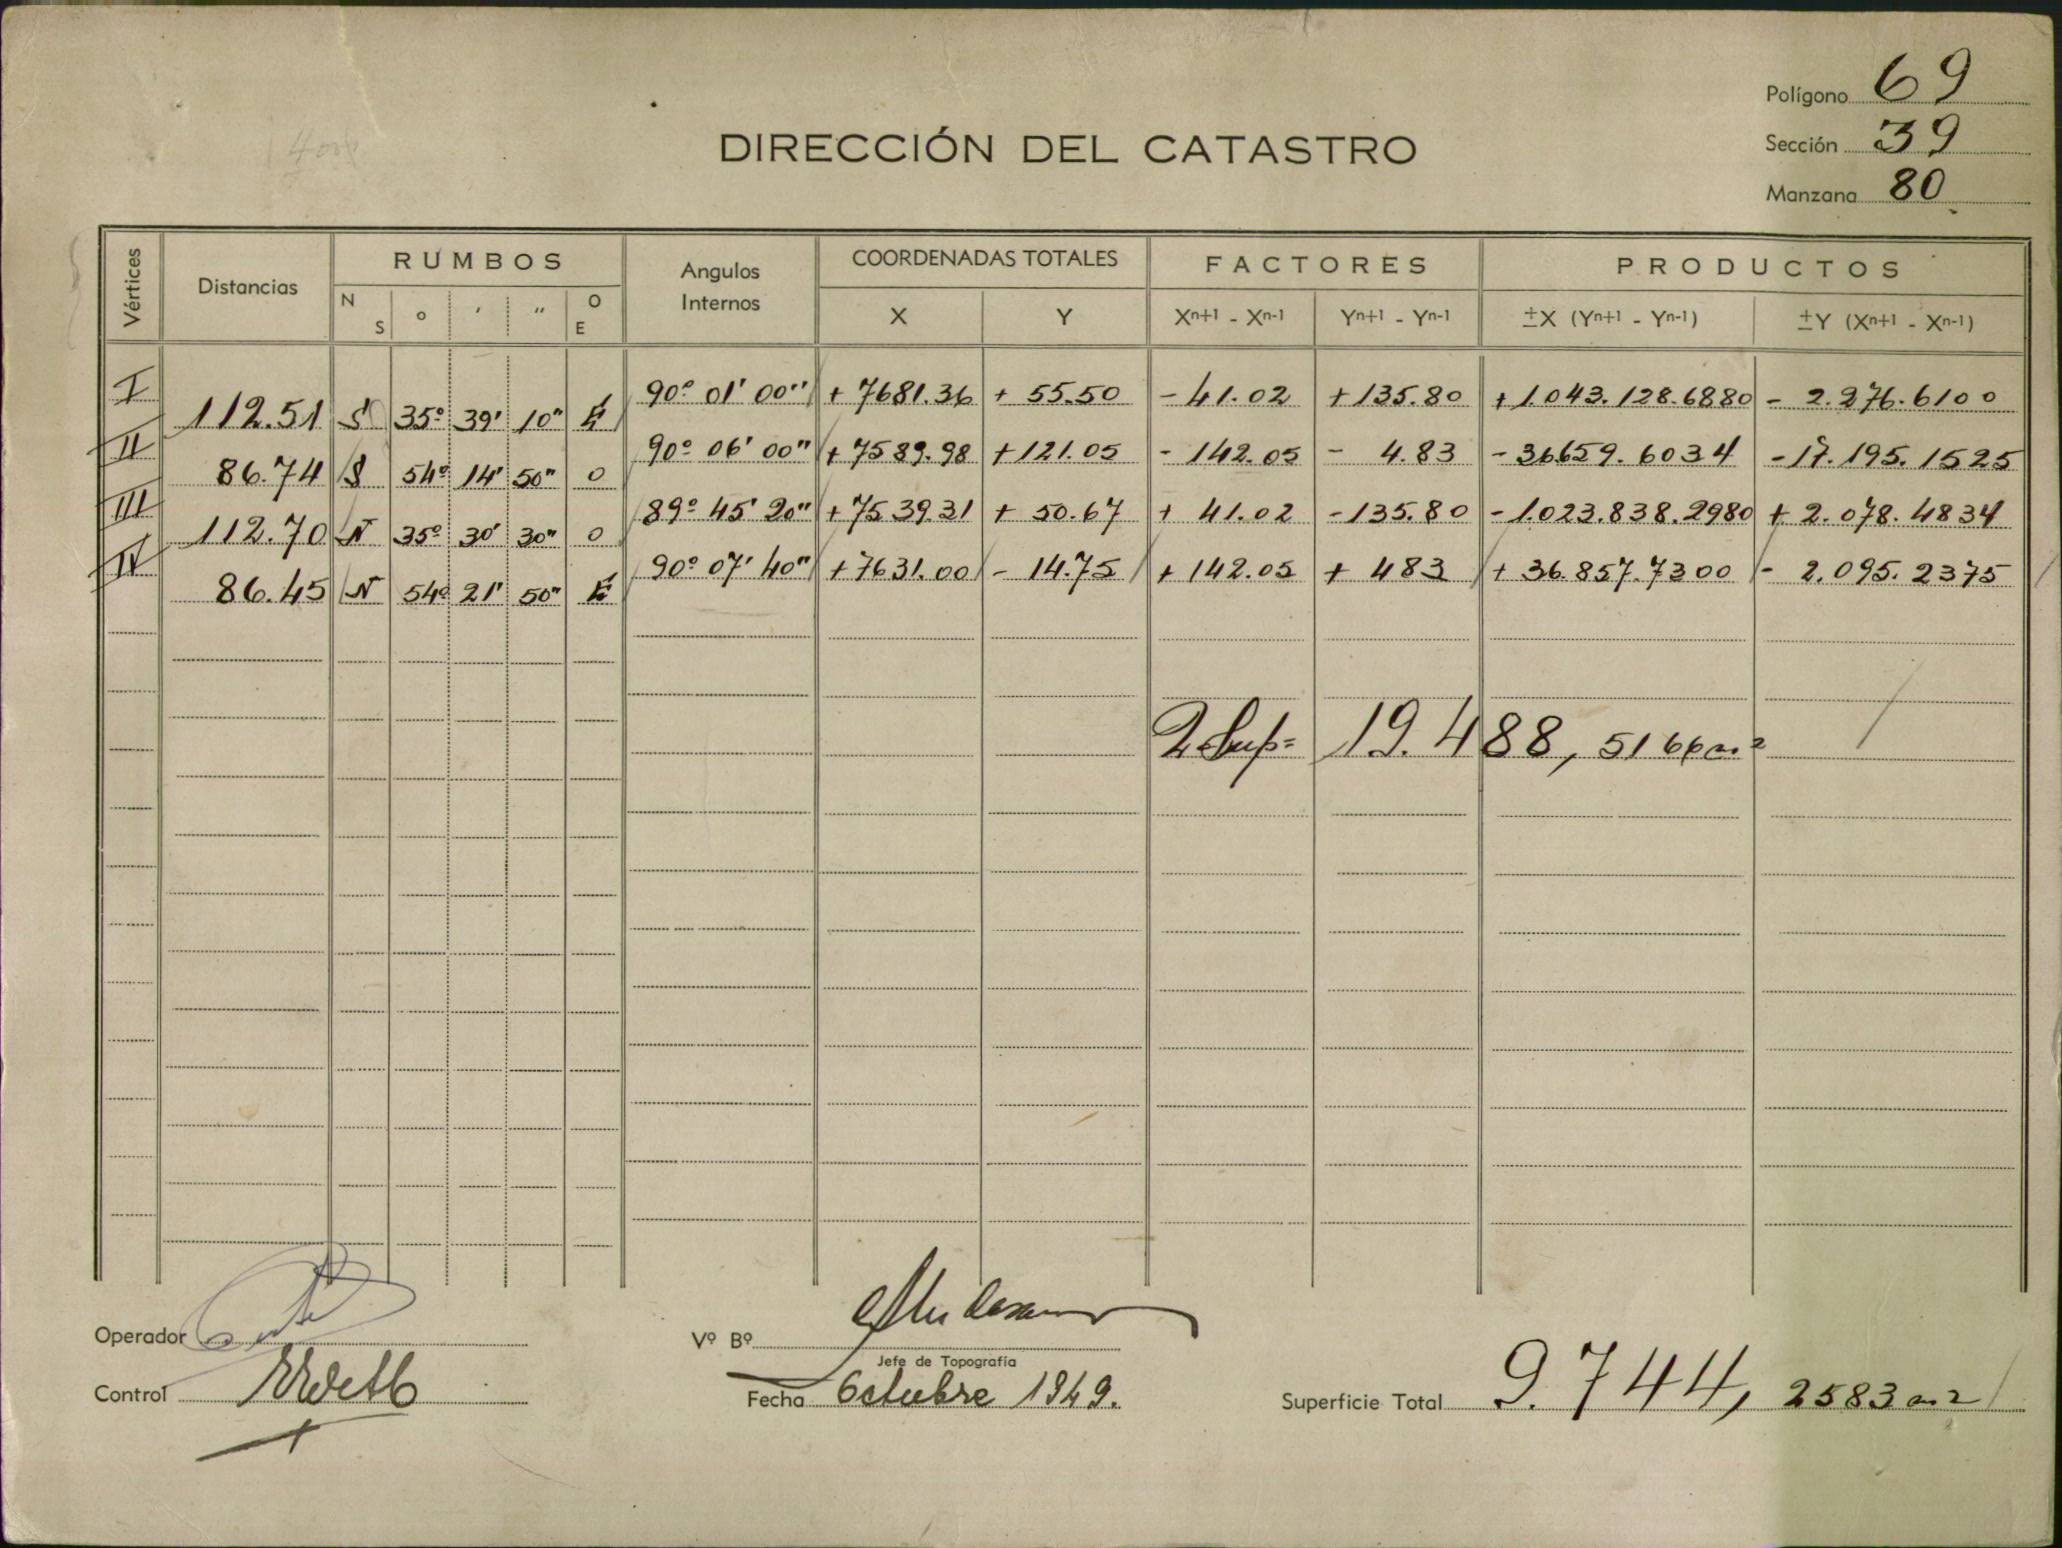 Polígono 69
DIRECCIÓN DEL CATASTRO
Sección 39
Manzana 80
Vértices Distancias RUMBOS Angulos Internos COORDENADAS TOTALES FACTORES PRODUCTOS
N S ° ′ ″ O E X Y Xn+1 - Xn-1 Yn+1 - Yn-1 ±X (Yn+1 - Yn-1) ±Y (Xn+1 - Xn-1)
I 90° 01' 00" + 7681.36 + 55.50 - 41.02 + 135.80 + 1.043.128.6880 - 2.276.6100
112.51 S 35° 39' 10" E
II 90° 06' 00" + 7589.98 + 121.05 - 142.05 - 4.83 - 36659.6034 - 17.195.1525
86.74 S 54° 14' 50" O
III 89° 45' 20" + 7539.31 + 50.67 + 41.02 - 135.80 - 1.023.838.2980 + 2.078.4834
112.70 N 35° 30' 30" O
IV 90° 07' 40" + 7631.00 - 14.75 + 142.05 + 483 + 36.857.7300 - 2.095.2375
86.45 N 54° 21' 50" E
2 Sup = 19.488,5166 m2
Operador
Vº Bº
Jefe de Topografía
Control
Fecha Octubre 1949.
Superficie Total 9.744,2583 m2